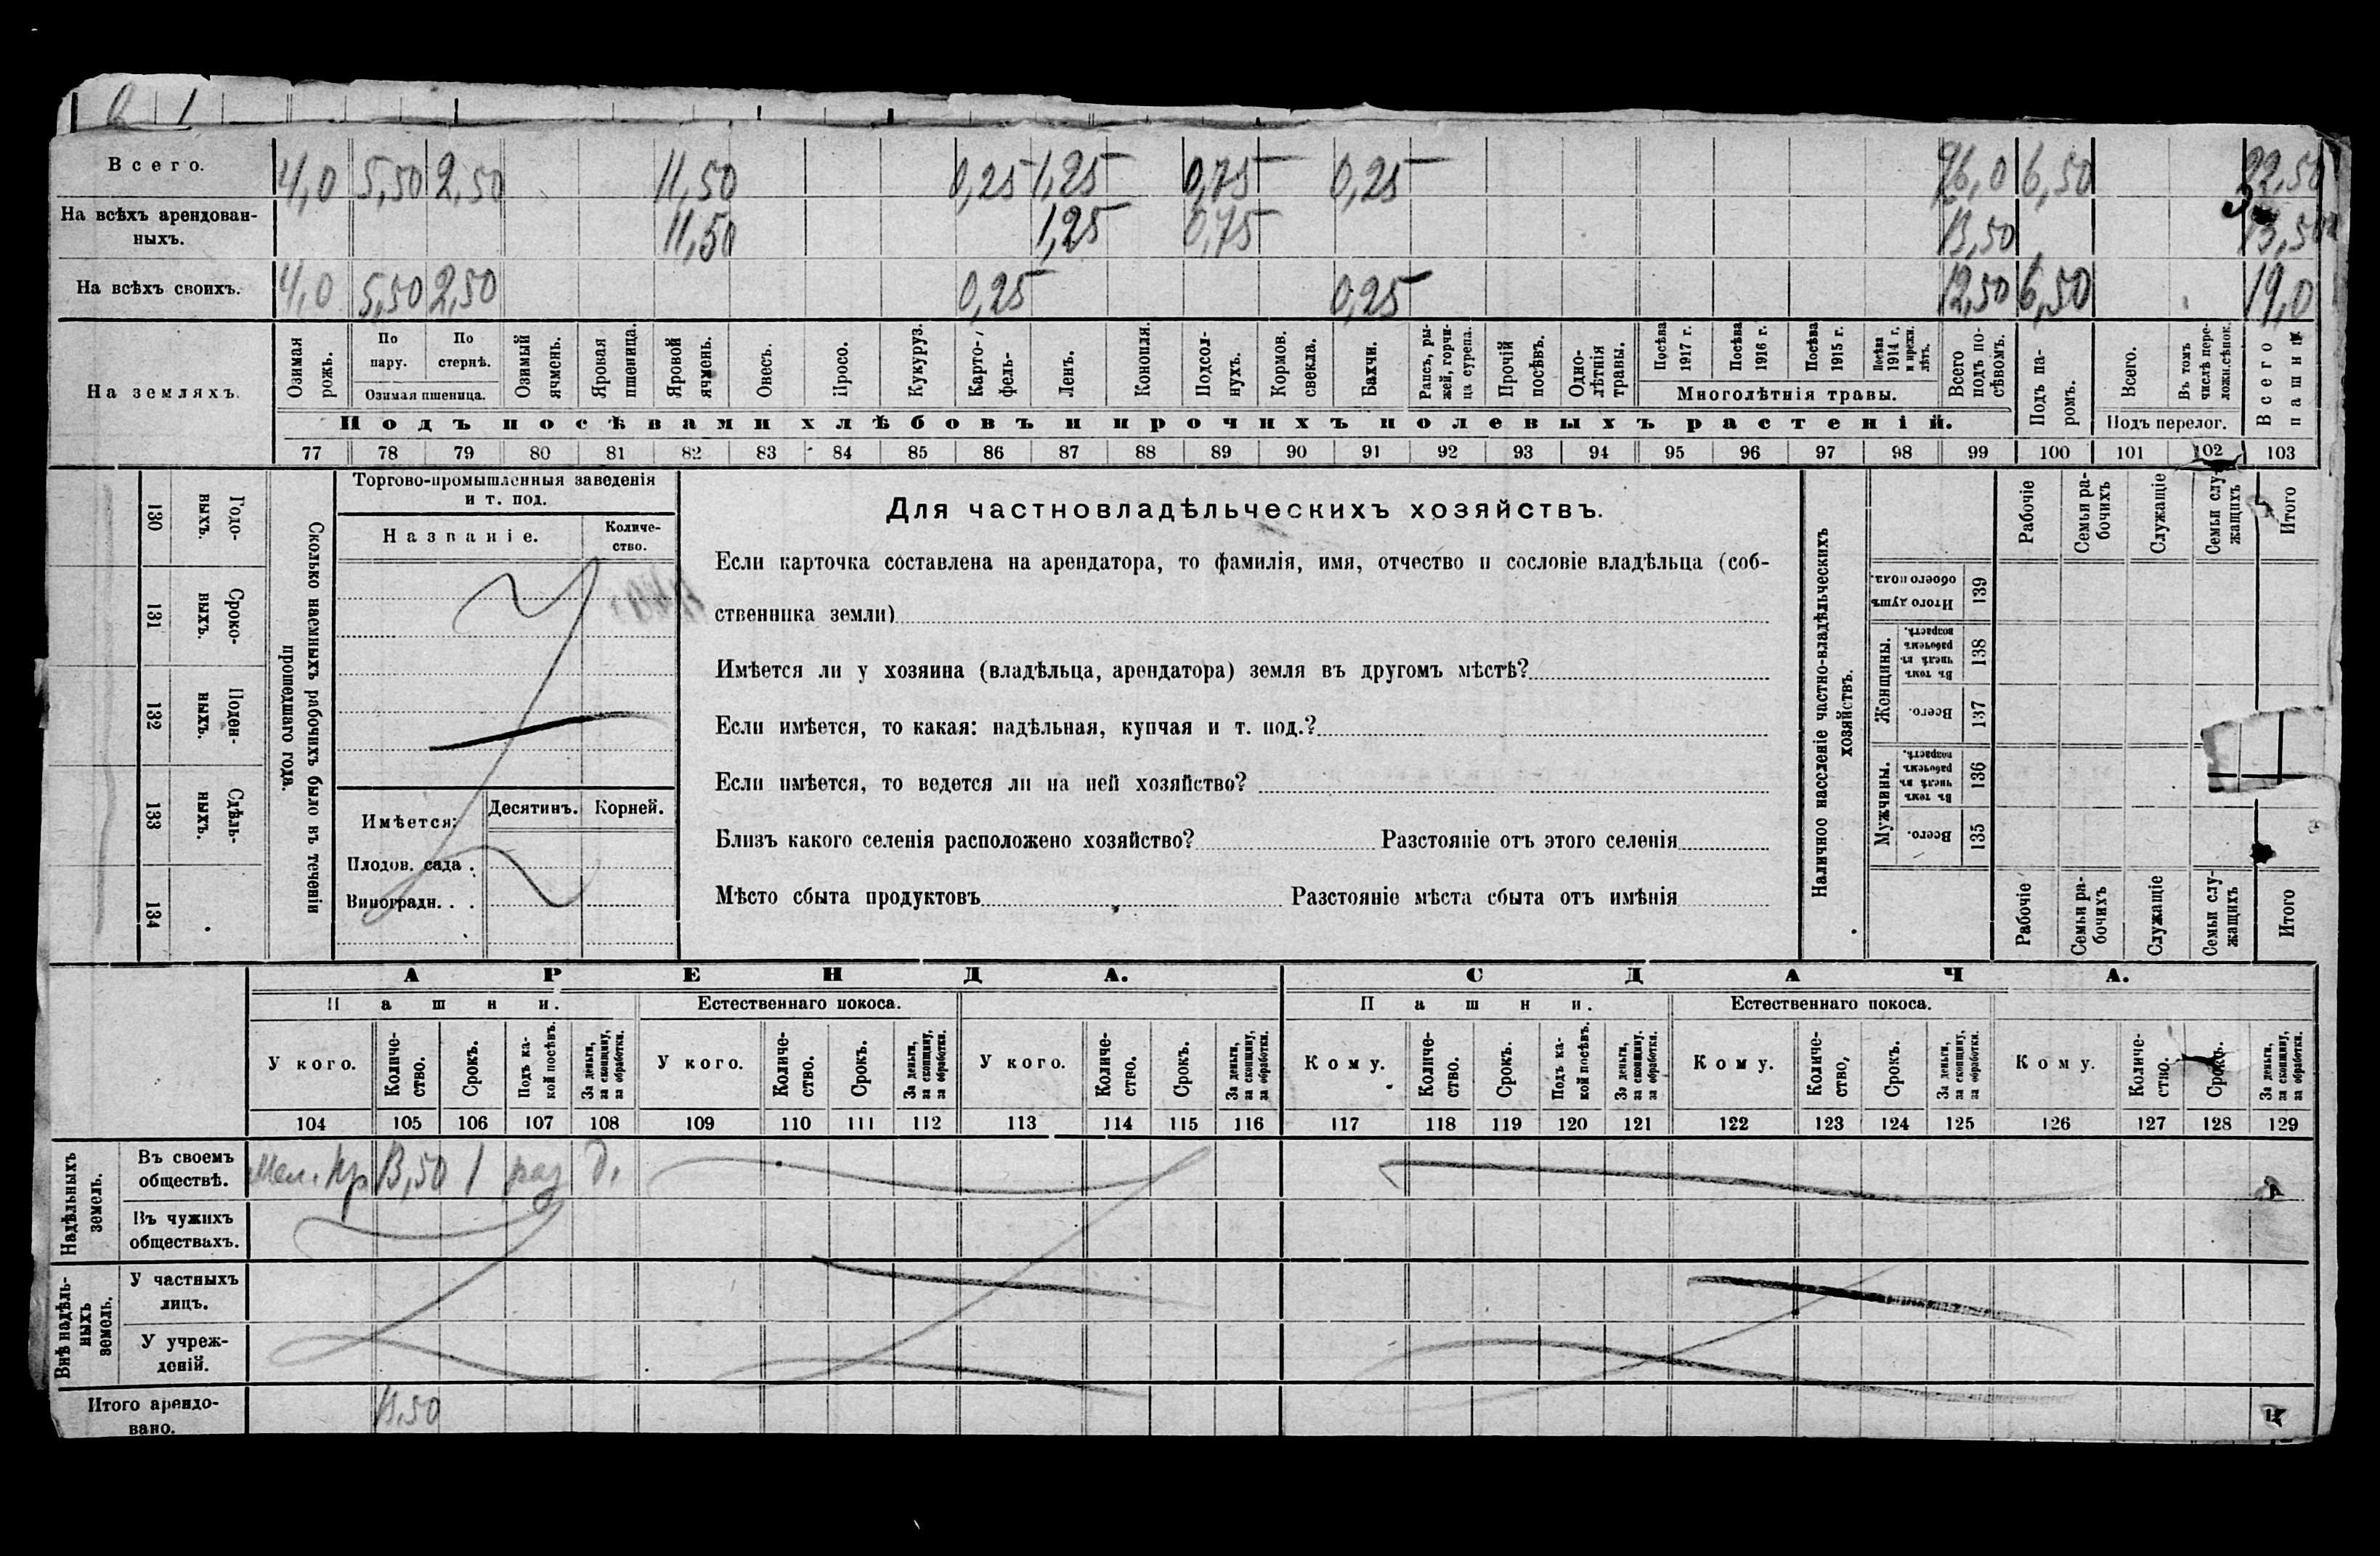 Всего. 4,0 5,50 2,50 11,50 0,25 1,25 0,75 0,25 26,0 6,50 32,50
На всѣхъ арендован-
ныхъ. 11,50 1,25 0,75 13,50 13,50
На всѣхъ своихъ. 4,0 5,50 2,50 0,25 0,25 12,50 6,50 19,0
На земляхъ.
Озимая рожь.
По пару.
По стернѣ.
Озимая пшеница.
Озимый ячмень.
Яровая пшеница.
Яровой ячмень.
Овесъ.
Просо.
Кукуруз.
Карто-
фель-
Ленъ.
Конопля.
Подсол-
нухъ.
Кормов. свекла.
Бахчи.
Рапсъ, ры-
жей, горчи-
ца сурепа.
Прочій посѣвъ.
Одно-
лѣтнія травы.
Посѣва 1917 г.
Посѣва 1916 г.
Посѣва 1915 г.
Посѣва 1914 г. и прежн. лѣтъ.
Многолѣтнія травы.
Всего подъ по-
сѣвомъ.
Подъ па-
ромъ.
Всего.
Въ томъ числѣ пере-
ложн.сѣнок.
Подъ перелог.
Всего пашни.
Подъ посѣвами хлѣбовъ и прочихъ полевыхъ растеній.
77 78 79 80 81 82 83 84 85 86 87 88 89 90 91 92 93 94 95 96 97 98 99 100 101 102 103
130 Годо-
выхъ.
131 Сроко-
выхъ.
132 Поден-
ныхъ.
133 Сдѣль-
ныхъ.
134
Сколько наемныхъ рабочихъ было въ теченіи
прошедшаго года.
Торгово-промышленныя заведенія
и т. под.
Названіе.
Количе-
ство.
Имѣется:
Десятинъ. Корней.
Плодов. сада .
Виноградн. . .
Для частновладѣльческихъ хозяйствъ.
Если карточка составлена на арендатора, то фамилія, имя, отчество и сословіе владѣльца (соб-
ственника земли)
Имѣется ли у хозяина (владѣльца, арендатора) земля въ другомъ мѣстѣ?
Если имѣется, то какая: надѣльная, купчая и т. под.?
Если имѣется, то ведется ли на ней хозяйство?
Близъ какого селенія расположено хозяйство? Разстояніе отъ этого селенія
Мѣсто сбыта продуктовъ Разстояніе мѣста сбыта отъ имѣнія
Наличное населеніе частно-владѣльческихъ
хозяйствъ.
Рабочіе
Семьи ра-
бочихъ
Служащіе
Семьи слу-
жащихъ
Итого
Итого душъ обоего пола. 139
Женщины.
Въ томъ числѣ въ рабочемъ возрастѣ. 138
Всего. 137
Мужчины.
Въ томъ числѣ въ рабочемъ возрастѣ. 136
Всего. 135
Рабочіе
Семьи ра-
бочихъ
Служащіе
Семьи слу-
жащихъ
Итого
АРЕНДА. СДАЧА.
Пашни. Естественнаго покоса. Пашни. Естественнаго покоса.
У кого.
Количе-
ство.
Срокъ.
Подъ ка-
кой посѣвъ.
За деньги,
за скопщину,
за обработки.
У кого.
Количе-
ство.
Срокъ.
За деньги,
за скопщину,
за обработки.
У кого.
Количе-
ство.
Срокъ.
За деньги,
за скопщину,
за обработки.
Кому.
Количе-
ство.
Срокъ.
Подъ ка-
кой посѣвъ.
За деньги,
за скопщину,
за обработки.
Кому.
Количе-
ство,
Срокъ.
За деньги,
за скопщину,
за обработки.
Кому.
Количе-
ство.
Срокъ.
За деньги,
за скопщину,
за обработки.
104 105 106 107 108 109 110 111 112 113 114 115 116 117 118 119 120 121 122 123 124 125 126 127 128 129
Надѣльныхъ
земель.
Въ своемъ
обществѣ. 13,50 1 раз д.
Въ чужихъ
обществахъ.
Внѣ надѣль-
ныхъ
земель.
У частныхъ
лицъ.
У учреж-
деній.
Итого арендо-
вано. 13,50